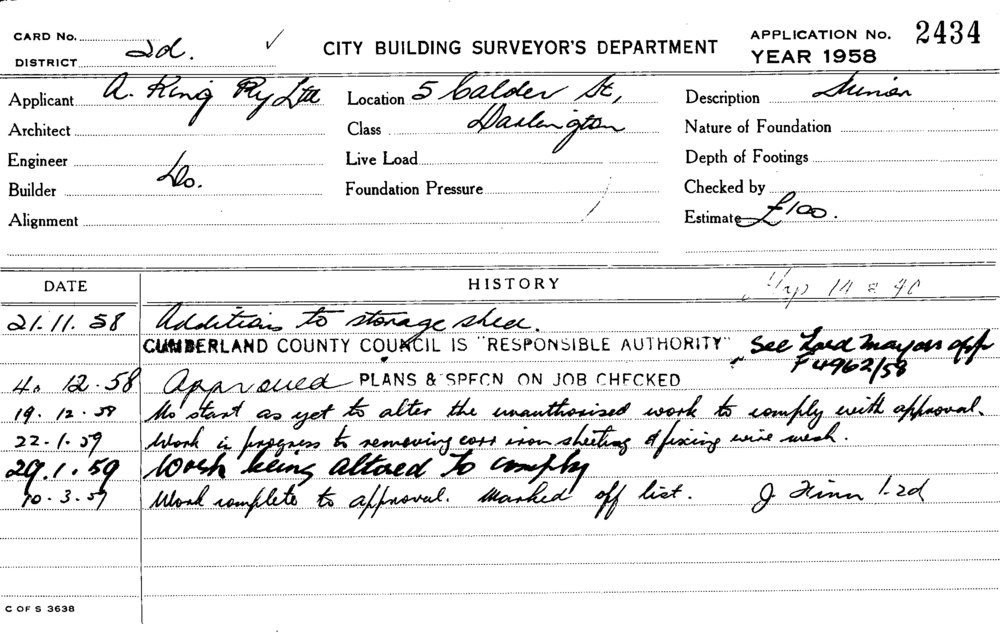 CARD No.
DISTRICT 2d. ✓
CITY BUILDING SURVEYOR'S DEPARTMENT
APPLICATION No. 2434
YEAR 1958
Applicant A. King Pty Ltd
Location 5 Calder St,
Description Minor
Architect
Class Darlington
Nature of Foundation
Engineer
Live Load
Depth of Footings
Builder Do.
Foundation Pressure
Checked by
Alignment
Estimate £100.
DATE HISTORY
21.11.58 Additions to storage shed.
CUMBERLAND COUNTY COUNCIL IS "RESPONSIBLE AUTHORITY" See Lord Mayors app
F4962/58
4. 12.58 Approved PLANS & SPECN ON JOB CHECKED
19. 12. 58 No start as yet to alter the unauthorised work to comply with approval.
22.1.59 Work in progress to removing corr iron sheeting & fixing wire mesh.
29.1.59 Work being altered to comply
10.3.59 Work complete to approval. Marked off list. J Finn 1-2d
C OF S 3638